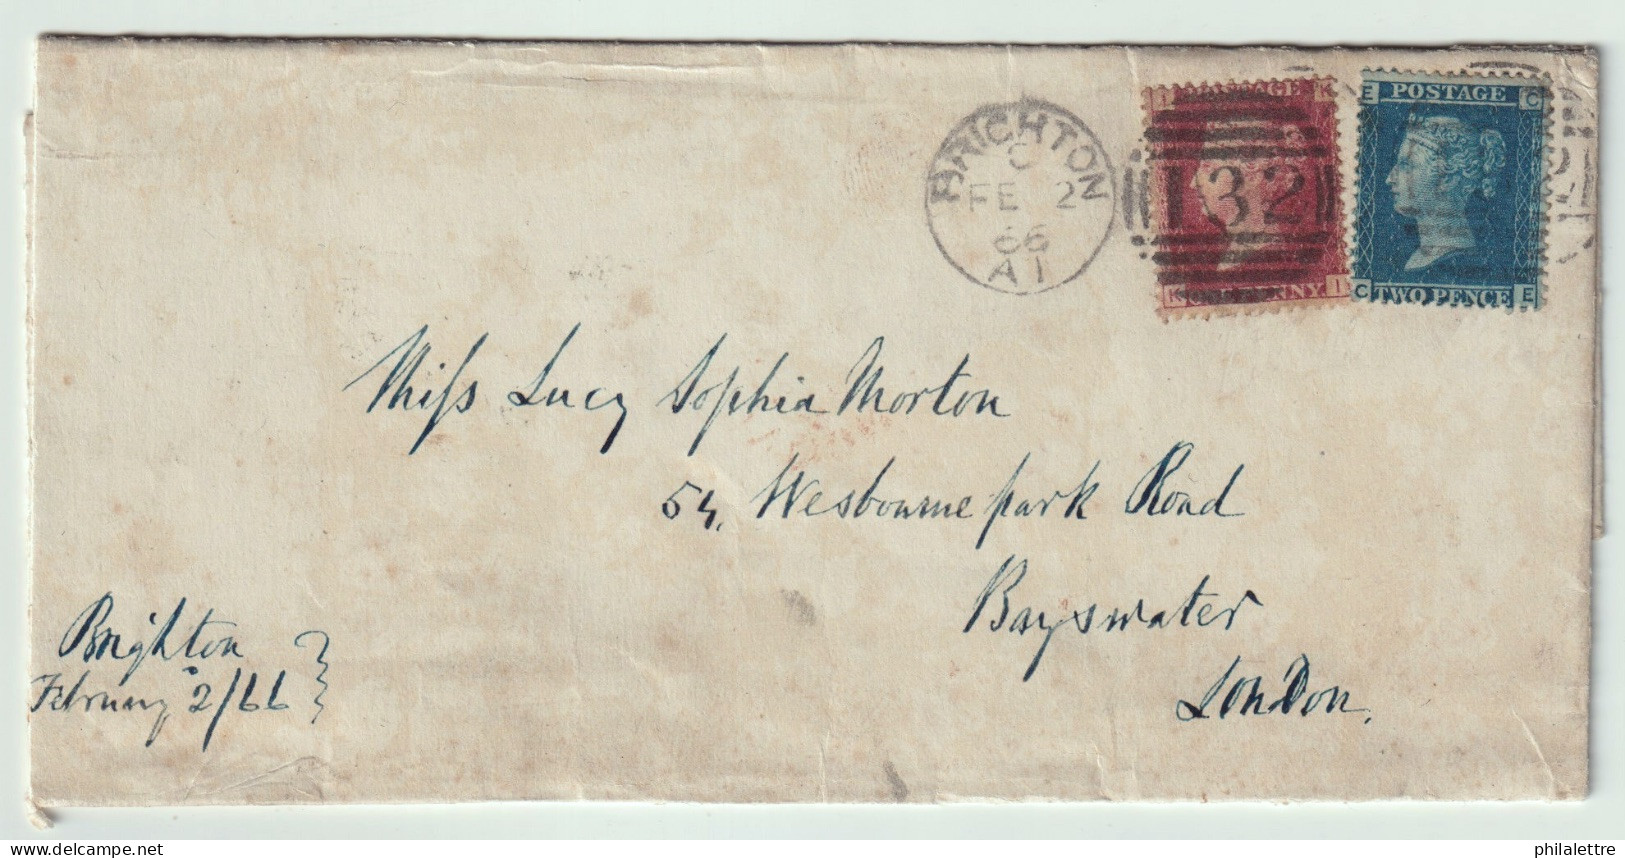 BRIGHTON
C
FE 2
66
A1
132
I K
POSTAGE
K I
PENNY
E POSTAGE C
C TWO PENCE E
Miss Lucy Sophia Morton
54, Wesbourne park Road
Bayswater
London.
Brighton
February 2/66
delcampe.net
philalettre